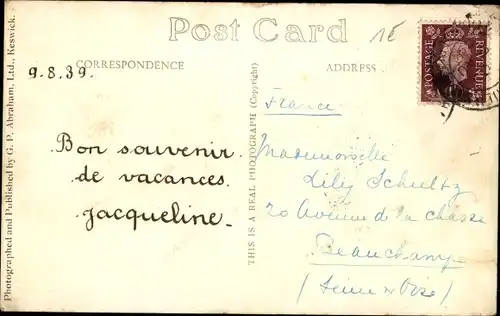 Post Card
1£
CORRESPONDENCE
ADDRESS
POSTAGE
REVENUE
9.8.39.
France
Bon souvenir
de vacances.
Jacqueline
Mademoiselle
Lily Schultz
20 Avenue de la chasse
Beauchamp
(Seine et Oise)
THIS IS A REAL PHOTOGRAPH (Copyright)
Photographed and Published by G. P. Abraham, Ltd., Keswick.